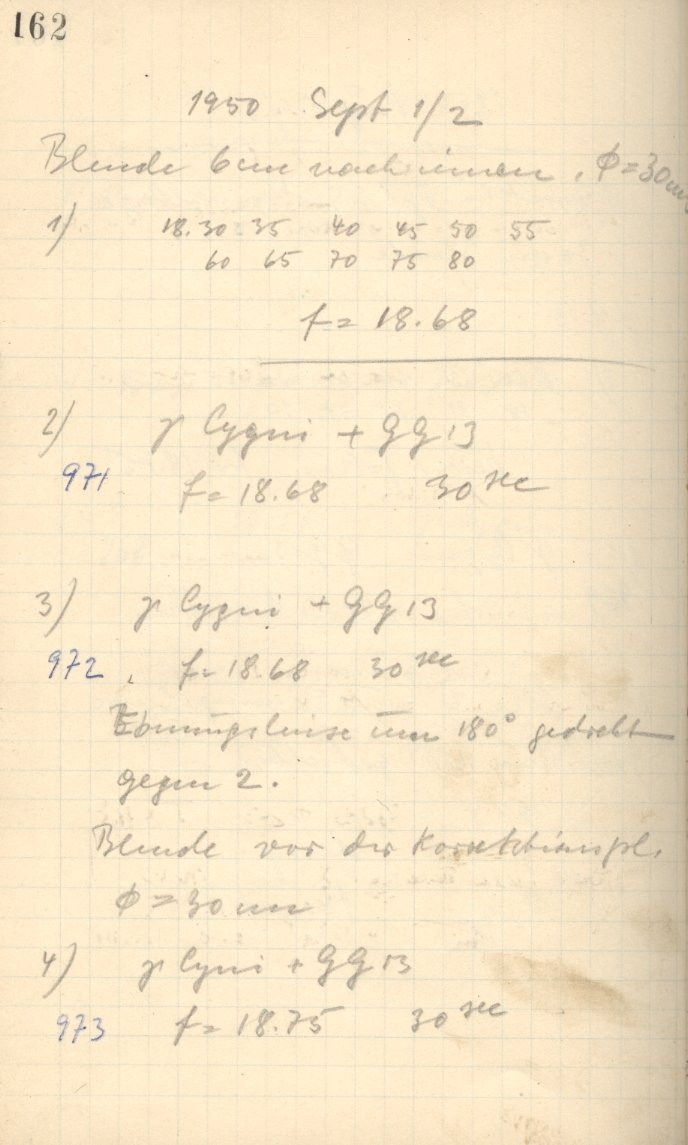 162
1950 Sept 1/2
Blende 6cm nach innen. ϕ=30mm
1) 18.30 35 40 45 50 55
60 65 70 75 80
f = 18.68
2) γ Cygni + GG 13
971 f = 18.68 30 sec
3) γ Cygni + GG 13
972 f = 18.68 30 sec
Ebnungslinse um 180° gedreht
gegen 2.
Blende vor der Korrektionspl.
ϕ = 30 mm
4) γ Cyni + GG 13
973 f = 18.75 30 sec